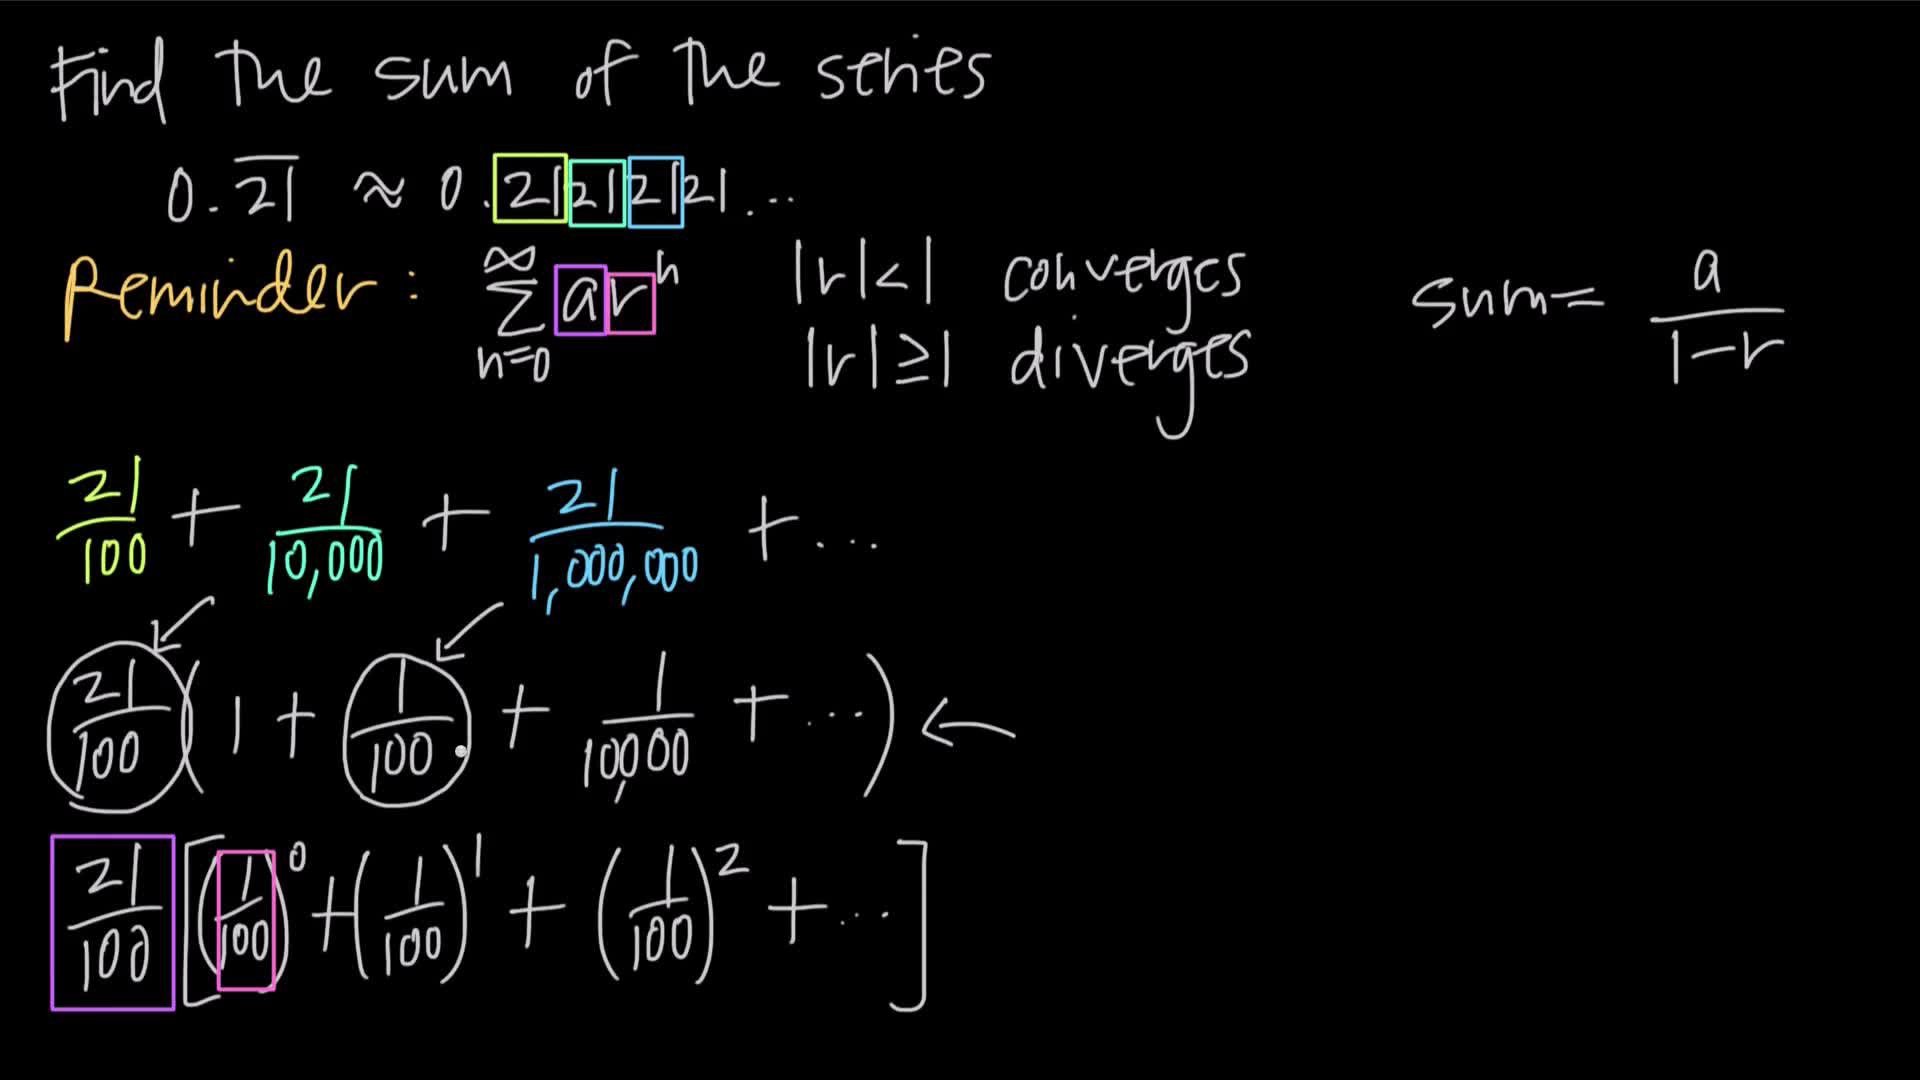 Find the sum of the series
0.2̅1̅ ≈ 0.21212121...
Reminder: ∞ ∑ n=0 ar^n |r|<1 converges sum= a/(1-r)
|r|≥1 diverges
21/100 + 21/10,000 + 21/1,000,000 + ...
21/100 (1 + 1/100 + 1/10,000 + ...) ←
21/100 [(1/100)^0 + (1/100)^1 + (1/100)^2 + ...]